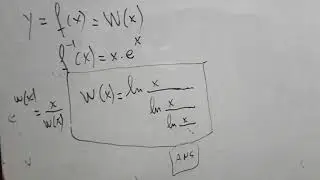 y = f(x) = W(x)
f⁻¹(x) = x·eˣ
e^W(x) = x / W(x)
W(x) = ln x / ln x / ln x / ...
ANS